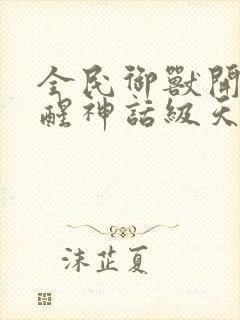 全民御獸開
醒神話級天
沫芷夏